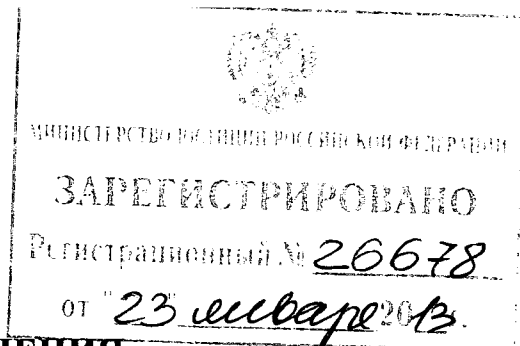 МИНИСТЕРСТВО ЮСТИЦИИ РОССИЙСКОЙ ФЕДЕРАЦИИ
ЗАРЕГИСТРИРОВАНО
Регистрационный № 26678
от "23" января 2013.